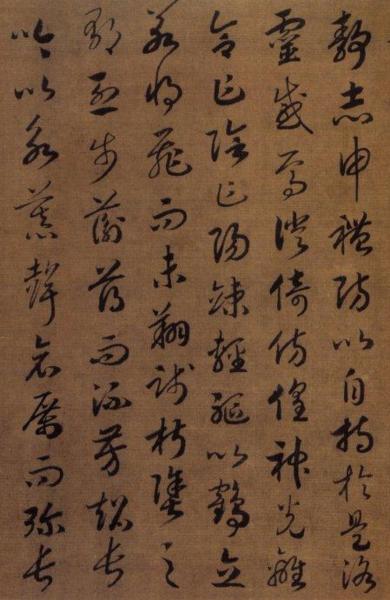 静志申禮防以自持於是洛
靈感焉徙倚彷徨神光離
合乍陰乍陽竦輕軀以鶴立
若將飛而未翔踐椒塗之
郁烈步蘅薄而流芳超長
吟以永慕聲哀厲而彌長